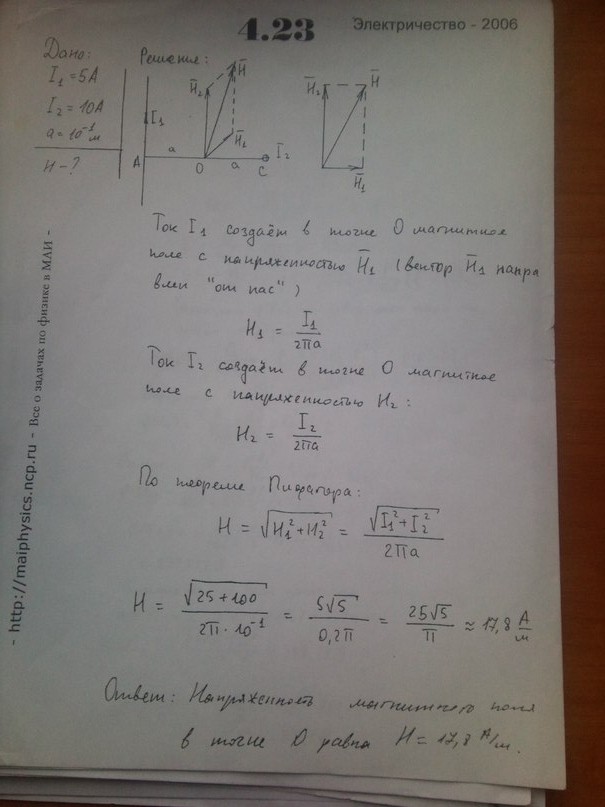 4.23
Электричество - 2006
Дано:
I₁ = 5A
I₂ = 10A
a = 10⁻¹ м
H - ?
Решение:
I₁
A
a
O
a
C
I₂
H̅₂
H̅
H̅₁
H̅₂
H̅
H̅₁
Ток I₁ создаёт в точке O магнитное
поле с напряженностью H̅₁ (вектор H̅₁ напра
влен "от нас")
H₁ = I₁/2πa
Ток I₂ создаёт в точке O магнитное
поле с напряженностью H₂:
H₂ = I₂/2πa
По теореме Пифагора:
H = √(H₁² + H₂²) = √(I₁² + I₂²)/2πa
H = √(25 + 100)/(2π · 10⁻¹) = 5√5/0,2π = 25√5/π ≈ 17,8 А/м
Ответ: Напряженность магнитного поля
в точке O равна H = 17,8 А/м.
- http://maiphysics.ncp.ru - Все о задачах по физике в МАИ -